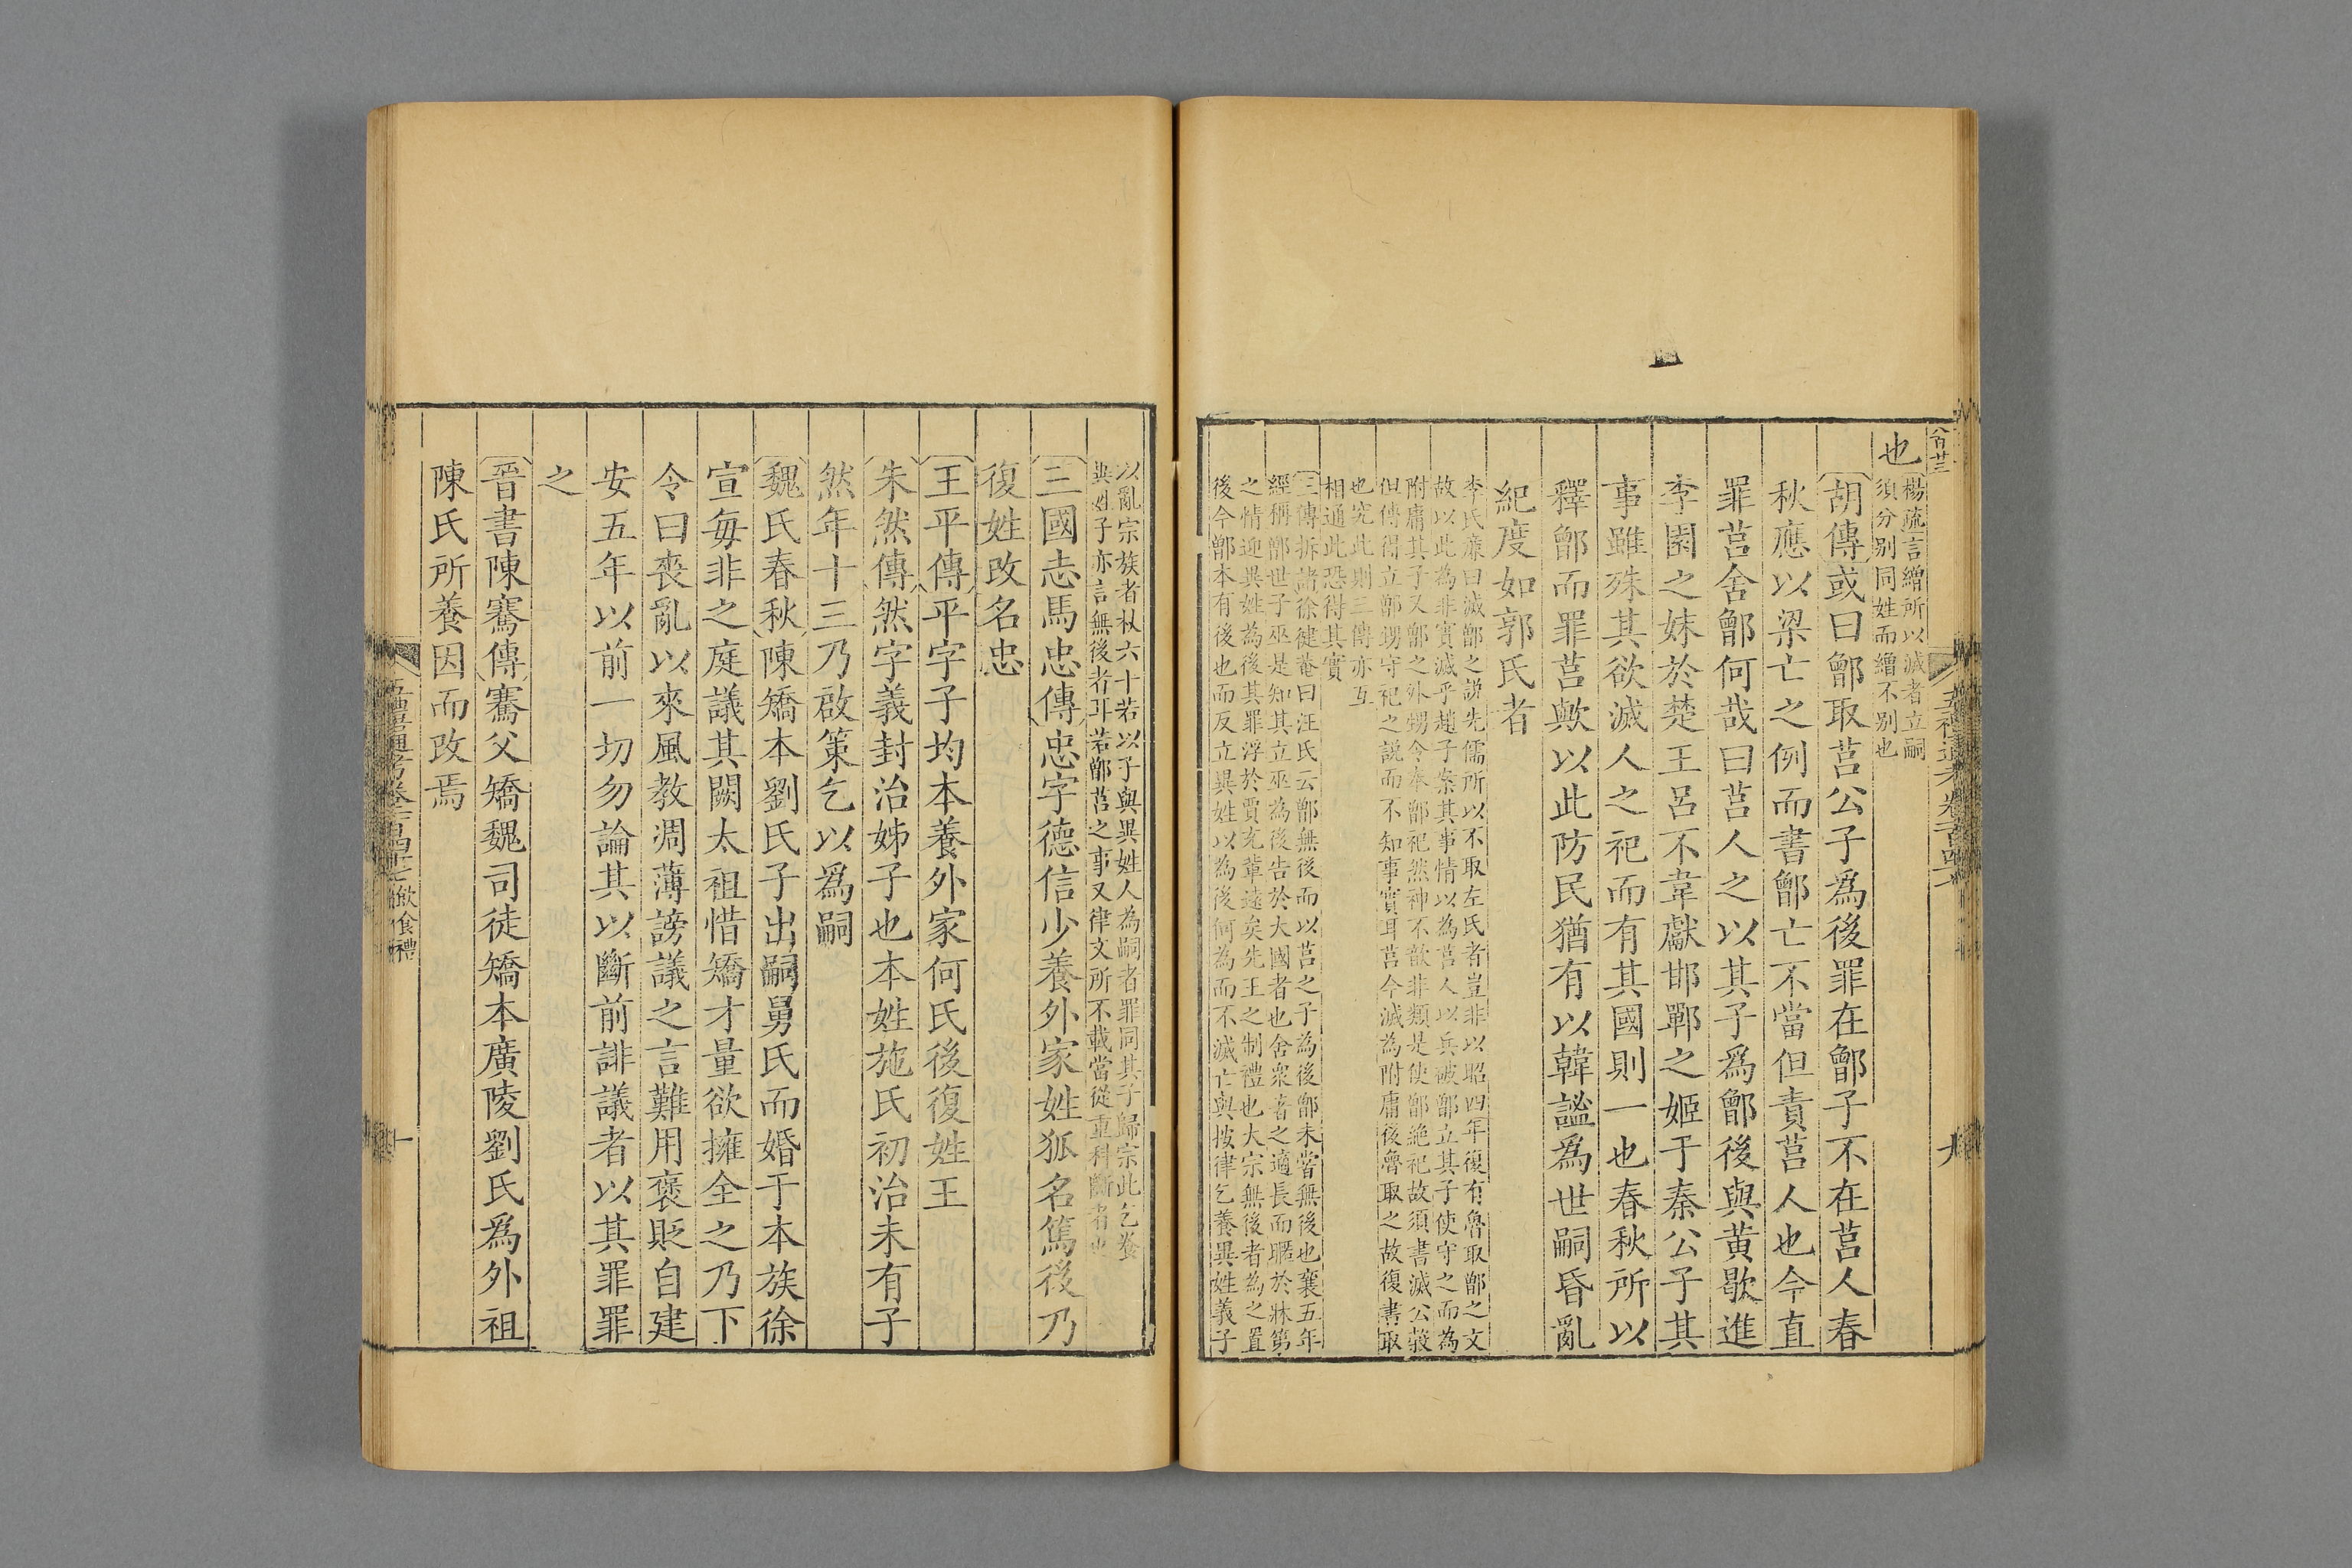 八百廿三
也
楊疏言繒所以滅者立嗣
須分別同姓而繒不別也
胡傳或曰鄫取莒公子爲後罪在鄫子不在莒人春
秋應以梁亡之例而書鄫亡不當但責莒人也今直
罪莒舍鄫何哉曰莒人之以其子爲鄫後與黄歇進
李園之妹於楚王呂不韋獻邯鄲之姬于秦公子其
事雖殊其欲滅人之祀而有其國則一也春秋所以
釋鄫而罪莒歟以此防民猶有以韓謐爲世嗣昏亂
紀度如郭氏者
李氏廉曰滅鄫之說先儒所以不取左氏者豈非以昭四年復有魯取鄫之文
故以此為非實滅乎趙子案其事情以為莒人以兵破鄫立其子使守之而為
附庸其子又鄫之外甥令奉鄫祀然神不歆非類是使鄫絶祀故須書滅公羖
但傳得立鄫甥守祀之説而不知事實耳莒今滅為附庸後魯取之故復書取
也究此則三傳亦互
相通此恐得其實
三傳拆諸徐健菴曰汪氏云鄫無後而以莒之子為後鄫未嘗無後也襄五年
經稱鄫世子巫是知其立巫為後告於大國者也舍衆著之適長而暱於牀第
之情迎異姓為後其罪浮於賈充輩遠矣先王之制禮也大宗無後者為之置
後今鄫本有後也而反立異姓以為後何為而不滅亡與按律乞養異姓義子
以亂宗族者杖六十若以子與異姓人為嗣者罪同其子歸宗此乞養
異姓子亦言無後者耳若鄫莒之事又律文所不載當從重科斷者也
三國志馬忠傳忠字德信少養外家姓狐名篤後乃
復姓改名忠
王平傳平字子均本養外家何氏後復姓王
朱然傳然字義封治姊子也本姓施氏初治未有子
然年十三乃啟策乞以爲嗣
魏氏春秋陳矯本劉氏子出嗣舅氏而婚于本族徐
宣每非之庭議其闕太祖惜矯才量欲擁全之乃下
令曰喪亂以來風教凋薄謗議之言難用褒貶自建
安五年以前一切勿論其以斷前誹議者以其罪罪
之
晉書陳騫傳騫父矯魏司徒矯本廣陵劉氏爲外祖
陳氏所養因而改焉